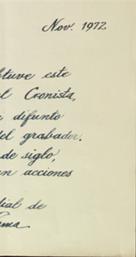 Nov. 1972
tuve este
el Cronista,
difunto
del grabador.
de siglo,
an acciones
dial de